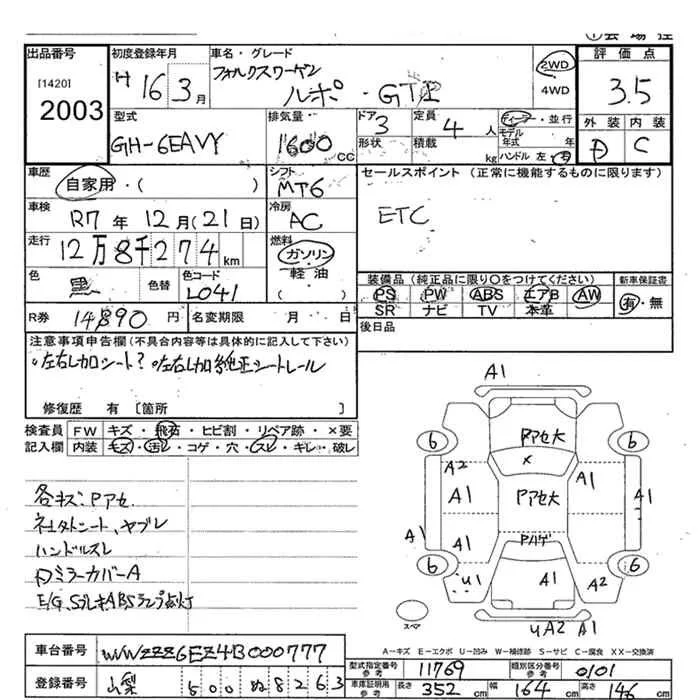 出品番号
[1420]
2003
初度登録年月
H 16 3月
車名・グレード
フォルクスワーゲン
ルポ・GTI
2WD
4WD
評価点
3.5
外装 内装
D C
型式
GH-6EAVY
排気量
1600 CC
ドア
3
形状
定員
4 人
積載
kg
ディーラー・並行
モデル年式 年
ハンドル 左・右
車歴
自家用・( )
シフト
MT6
セールスポイント(正常に機能するものに限ります)
ETC
車検
R7年12月(21日)
冷房
AC
走行
12万8千274km
燃料
ガソリン・
軽油
( )
色
黒
色替
色コード
L041
装備品(純正品に限り〇をつけてください)
PS PW ABS エアB AW
SR ナビ TV 本革
新車保証書
有・無
R券 14890円
名変期限 月 日
後日品
注意事項申告欄(不具合内容等は具体的に記入して下さい)
修復歴 有 [箇所 ]
検査員
記入欄
FW キズ・飛石・ヒビ割・リペア跡・×要
内装 キズ・汚レ・コゲ・穴・スレ・キレ・破レ
各キズ・Pアセ
ハンドルスレ
DミラーカバーA
A1
6
Pアセ大
6
A2
×
A1
A1
Pアセ大
A1
A1
A1
Pハゲ
6
6
U1
A1
A2
スペア
UA2 A1
A−キズ E−エクボ U−凹み W−補修跡 S−サビ C−腐食 XX−交換済
車台番号
WVWZZZ6EZ4B000777
登録番号
山梨 500 ぬ 8263
型式指定番号
参考
11769
類別区分番号
参考
0101
車庫証明用
参考
長さ 352 cm
幅 164 cm
高さ 146 cm